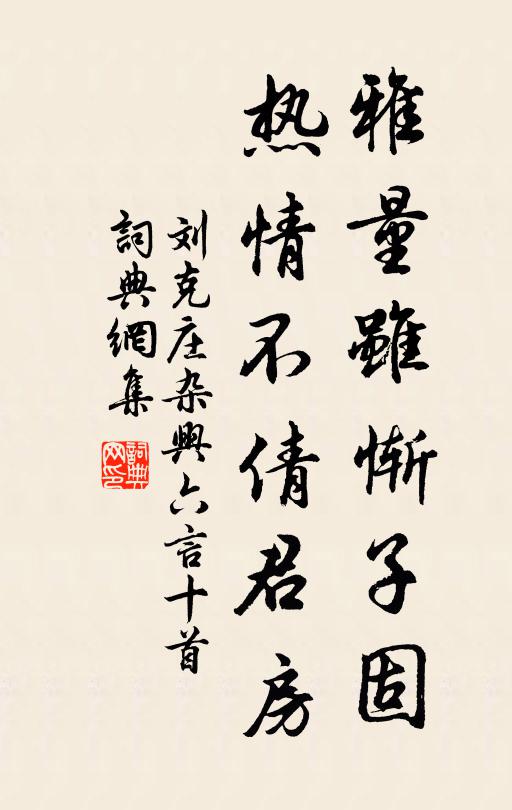 雅量雖慚子固
热情不倩君房
刘克庄杂興六言十首
詞典網集
詞典网印